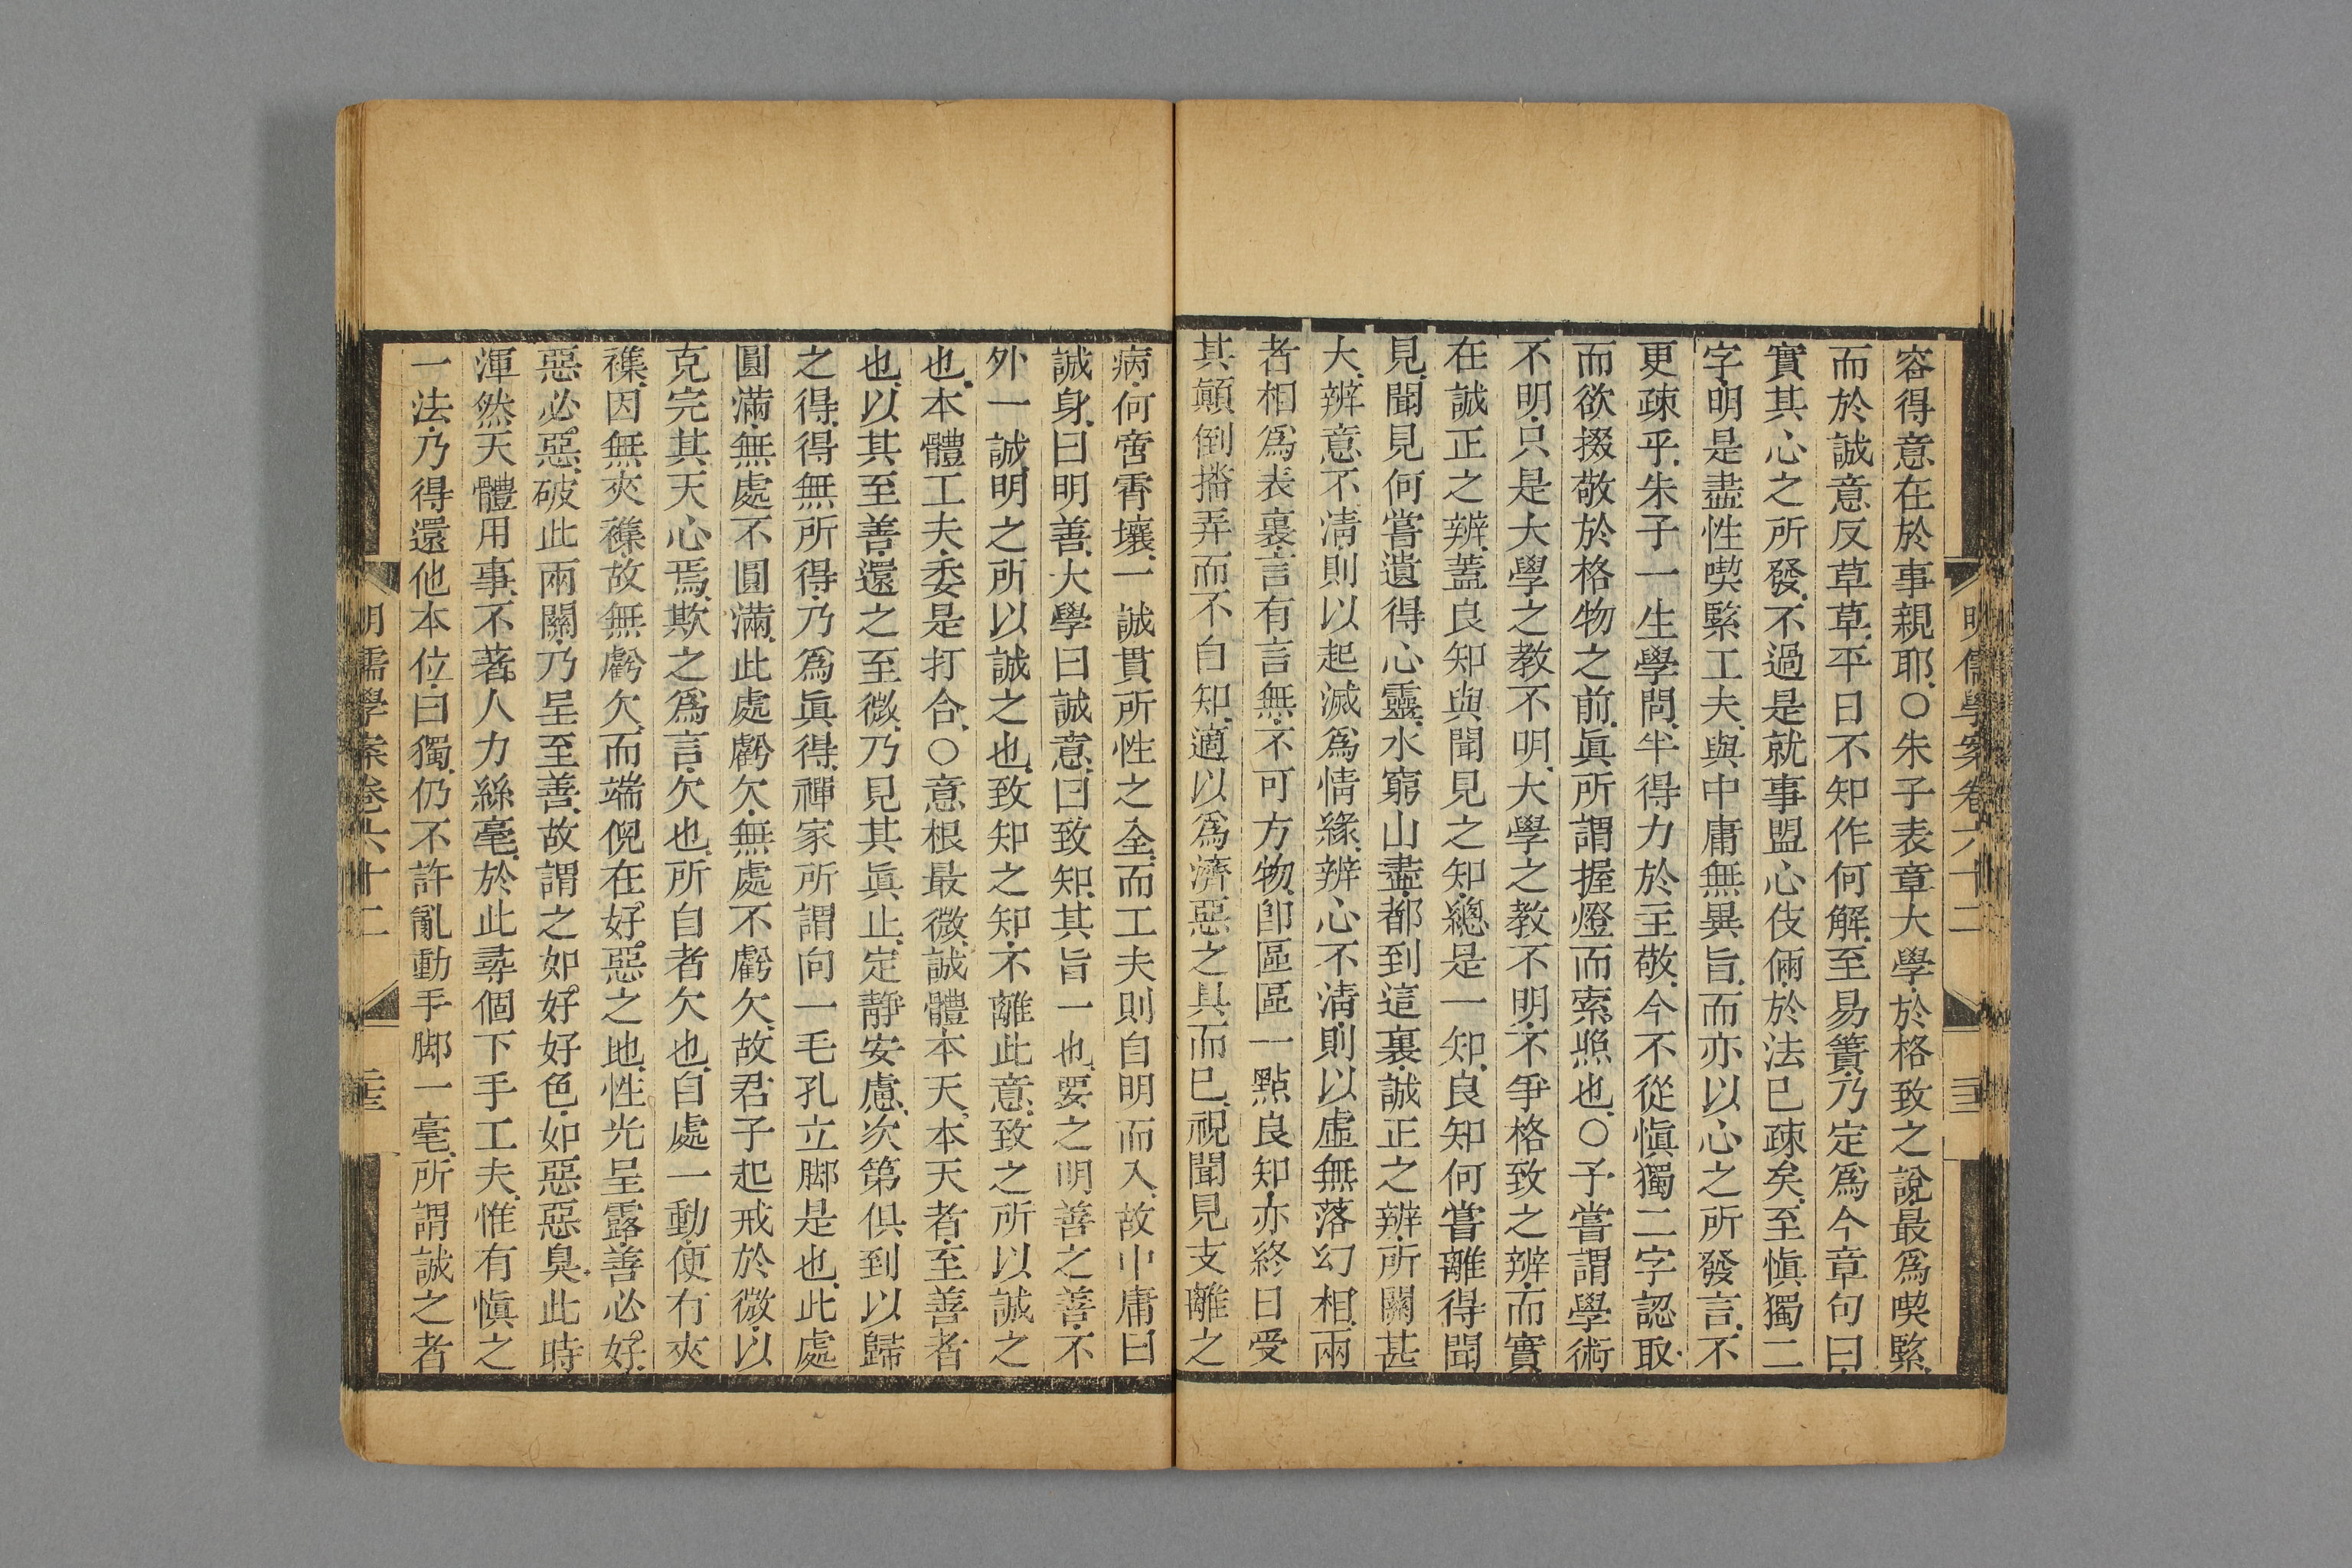 明儒學案卷六十二
容得意在於事親耶○朱子表章大學於格致之說最爲喫緊
而於誠意反草草平日不知作何解至易簀乃定爲今章句曰
實其心之所發不過是就事盟心伎倆於法已疎矣至愼獨二
字明是盡性喫緊工夫與中庸無異旨而亦以心之所發言不
更疎乎朱子一生學問半得力於主敬今不從愼獨二字認取
而欲掇敬於格物之前眞所謂握燈而索照也○予嘗謂學術
不明只是大學之教不明大學之教不明不爭格致之辨而實
在誠正之辨蓋良知與聞見之知總是一知良知何嘗離得聞
見聞見何嘗遺得心靈水窮山盡都到這裏誠正之辨所關甚
大辨意不淸則以起滅爲情緣辨心不淸則以虛無落幻相兩
者相爲表裏言有言無不可方物卽區區一點良知亦終日受
其顚倒播弄而不自知適以爲濟惡之具而已視聞見支離之
病何啻霄壤一誠貫所性之全而工夫則自明而入故中庸曰
誠身曰明善大學曰誠意曰致知其旨一也要之明善之善不
外一誠明之所以誠之也致知之知不離此意致之所以誠之
也本體工夫委是打合○意根最微誠體本天本天者至善者
也以其至善還之至微乃見其眞止定靜安慮次第俱到以歸
之得得無所得乃爲眞得禪家所謂向一毛孔立脚是也此處
圓滿無處不圓滿此處虧欠無處不虧欠故君子起戒於微以
克完其天心焉欺之爲言欠也所自者欠也自處一動便有夾
襍因無夾襍故無虧欠而端倪在好惡之地性光呈露善必好
惡必惡破此兩關乃呈至善故謂之如好好色如惡惡臭此時
渾然天體用事不著人力絲毫於此尋個下手工夫惟有愼之
一法乃得還他本位曰獨仍不許亂動手脚一毫所謂誠之者
明儒學案卷六十二